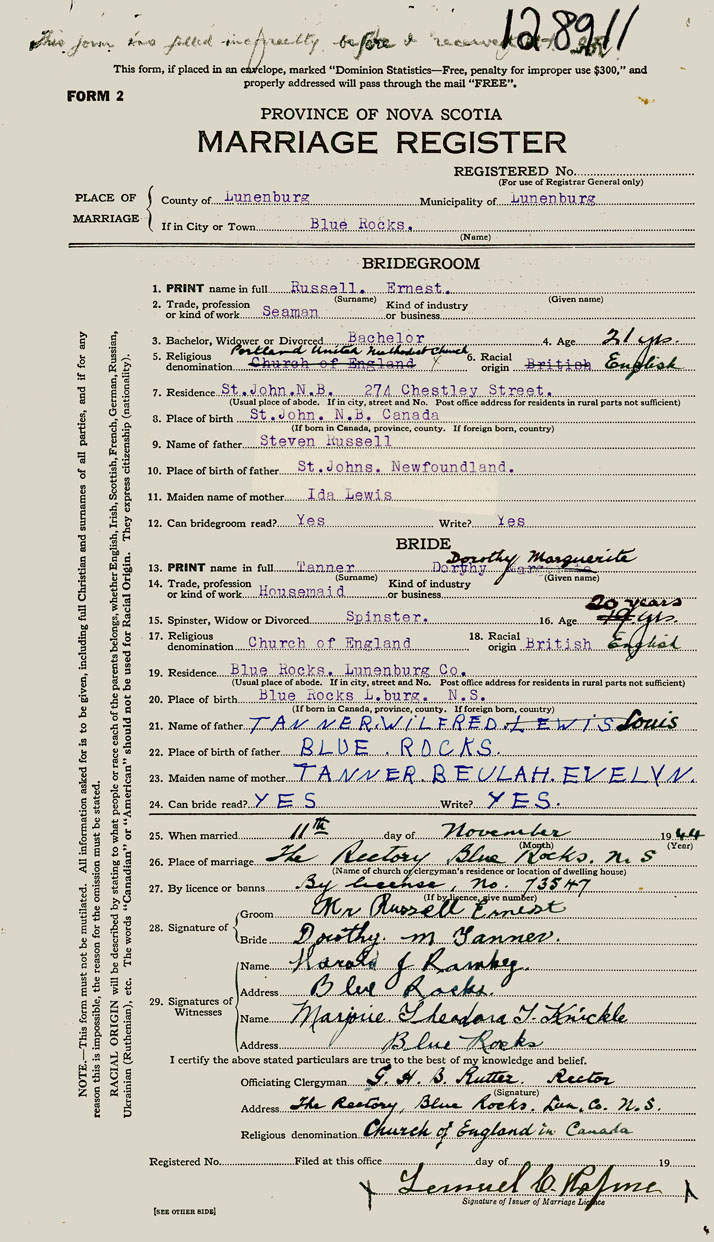 128911
This form was filled incorrectly before I received it
This form, if placed in an envelope, marked "Dominion Statistics—Free, penalty for improper use $300," and
properly addressed will pass through the mail "FREE".
FORM 2
PROVINCE OF NOVA SCOTIA
MARRIAGE REGISTER
REGISTERED No.
(For use of Registrar General only)
PLACE OF MARRIAGE
County of Lunenburg Municipality of Lunenburg
If in City or Town Blue Rocks.
(Name)
BRIDEGROOM
1. PRINT name in full Russell. Ernest.
(Surname) (Given name)
2. Trade, profession or kind of work Seaman Kind of industry or business
3. Bachelor, Widower or Divorced Bachelor 4. Age 21 yrs.
Portland United Methodist Church
5. Religious denomination Church of England 6. Racial origin British English
7. Residence St.John.N.B. 274 Chestley Street.
(Usual place of abode. If in city, street and No. Post office address for residents in rural parts not sufficient)
8. Place of birth St.John. N.B. Canada
(If born in Canada, province, county. If foreign born, country)
9. Name of father Steven Russell
10. Place of birth of father St.Johns. Newfoundland.
11. Maiden name of mother Ida Lewis
12. Can bridegroom read? Yes Write? Yes
BRIDE
Dorothy Marguerite
13. PRINT name in full Tanner Dorthy
(Surname) (Given name)
14. Trade, profession or kind of work Housemaid Kind of industry or business
20 years
15. Spinster, Widow or Divorced Spinster. 16. Age 19 yrs.
17. Religious denomination Church of England 18. Racial origin British English
19. Residence Blue Rocks. Lunenburg Co.
(Usual place of abode. If in city, street and No. Post office address for residents in rural parts not sufficient)
20. Place of birth Blue Rocks L.burg. N.S.
(If born in Canada, province, county. If foreign born, country)
21. Name of father TANNER.WILFRED.LEWIS Louis
22. Place of birth of father BLUE.ROCKS.
23. Maiden name of mother TANNER.BEULAH.EVELYN.
24. Can bride read? YES Write? YES.
25. When married 11th day of November 1944
(Month) (Year)
26. Place of marriage The Rectory Blue Rocks. N.S
(Name of church or clergyman's residence or location of dwelling house)
27. By licence or banns By license, no. 73547
(If by licence, give number)
28. Signature of
Groom Mr Russell Ernest
Bride Dorothy. m Tanner.
29. Signatures of Witnesses
Name Harold J Ramkey.
Address Blue Rocks.
Name Marjorie Theodora T. Knickle
Address Blue Rocks
I certify the above stated particulars are true to the best of my knowledge and belief.
Officiating Clergyman G. H. B. Rutter. Rector
(Signature)
Address The Rectory, Blue Rocks. Lun. Co. N.S.
Religious denomination Church of England in Canada
Registered No. Filed at this office day of 19
Lemuel C.
Signature of Issuer of Marriage Licence
[SEE OTHER SIDE]
NOTE.—This form must not be mutilated. All information asked for is to be given, including full Christian and surnames of all parties, and if for any
reason this is impossible, the reason for the omission must be stated.
RACIAL ORIGIN will be described by stating to what people or race each of the parents belongs, whether English, Irish, Scottish, French, German, Russian,
Ukrainian (Ruthenian), etc. The words "Canadian" or "American" should not be used for Racial Origin. They express citizenship (nationality).